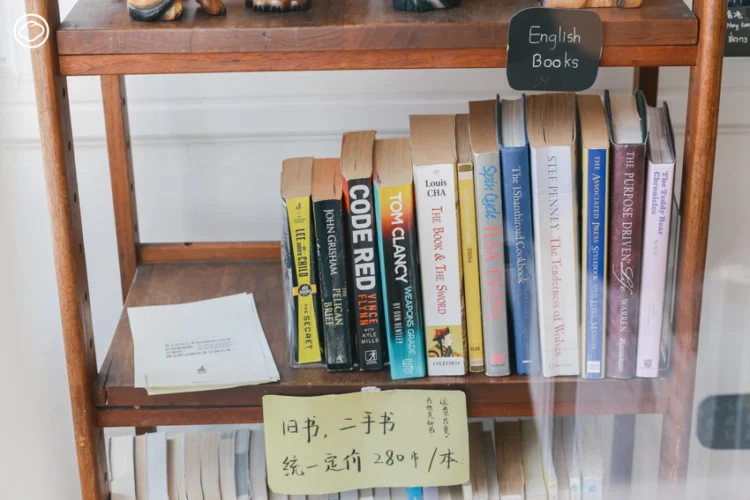 English
Books
LEE CHILD
THE SECRET
JOHN GRISHAM
THE PELICAN BRIEF
CODE RED
VINCE FLYNN
WITH KYLE MILLS
TOM CLANCY
WEAPONS GRADE
BY DON BENTLEY
Louis
CHA
THE BOOK & THE SWORD
OXFORD
Spin Cycle
The IShandhiroad Cookbook
STEF PENNEY The Tenderness of Wolves
THE ASSOCIATED PRESS STYLEBOOK AND LIBEL MANUAL
THE PURPOSE DRIVEN Life WARREN
The Teddy Bear Chronicles
旧书，二手书
统一定价 280币/本